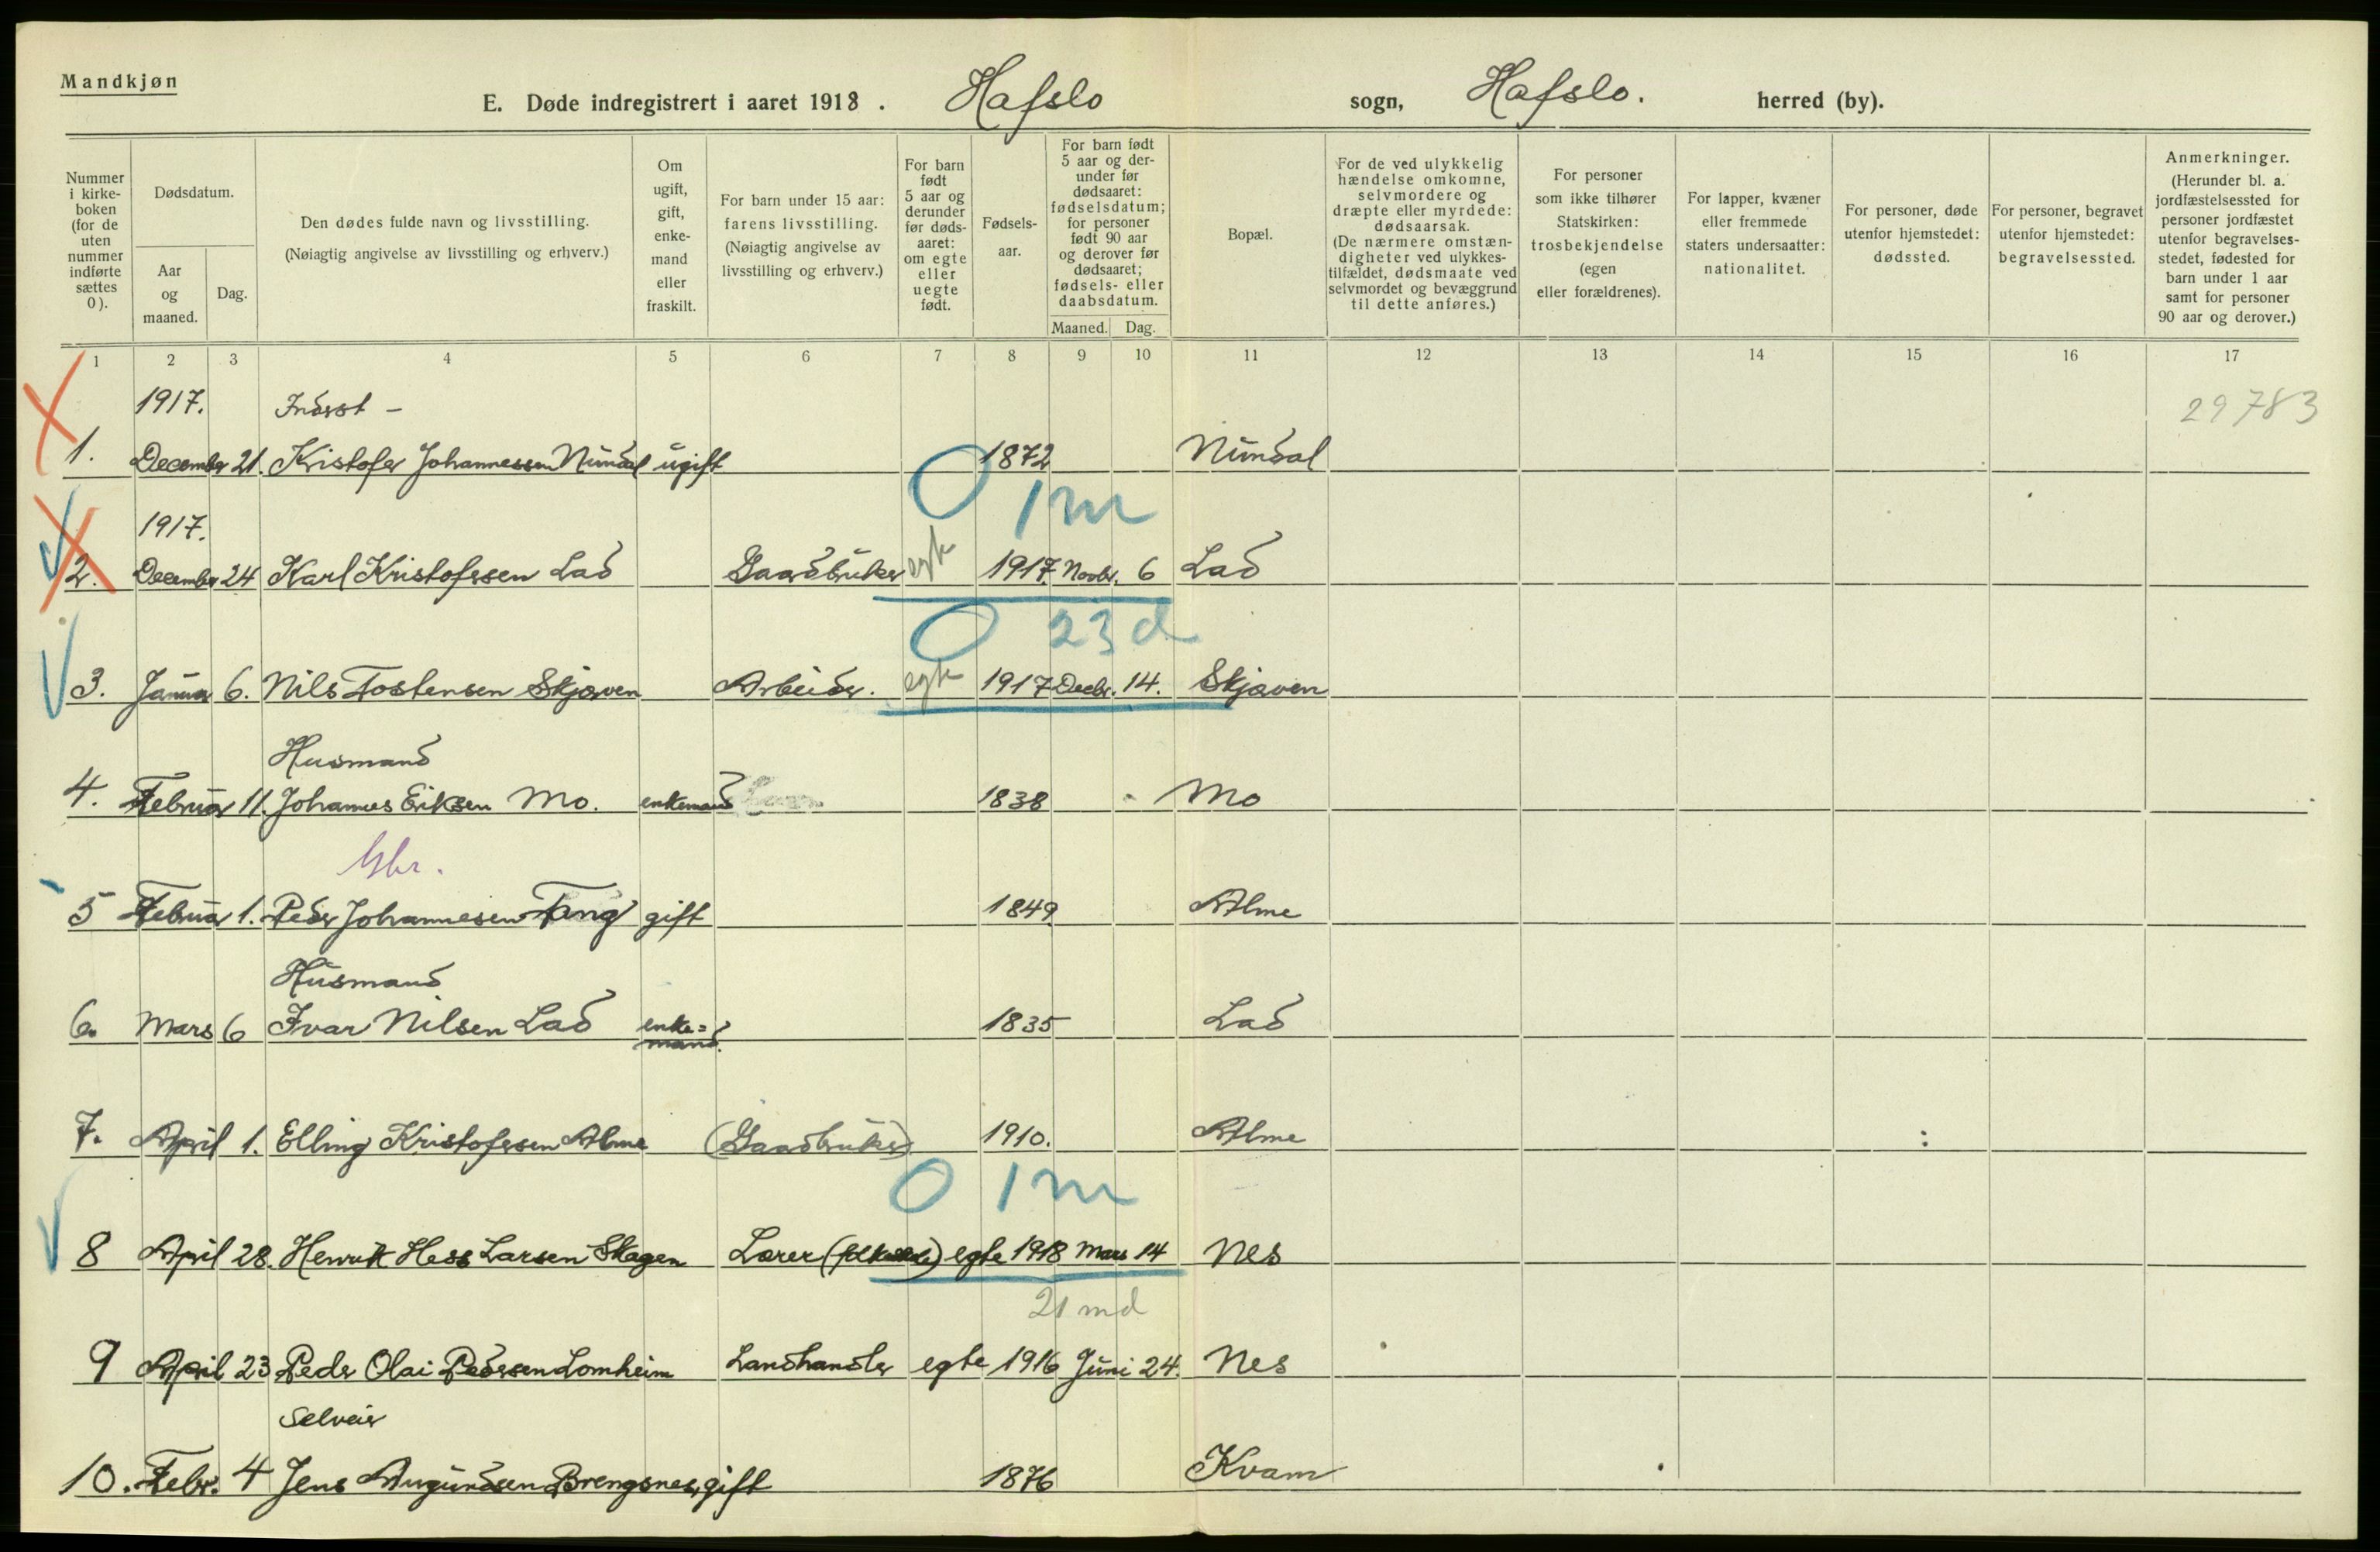 Mandkjøn
E. Døde indregistrert i aaret 1918. Hafslo sogn, Hafslo. herred (by).
Nummer i kirke-boken (for de uten nummer indførte sættes 0).
Dødsdatum.
Aar og maaned.
Dag.
Den dødes fulde navn og livsstilling.
(Nøiagtig angivelse av livsstilling og erhverv.)
Om ugift, gift, enke-mand eller fraskilt.
For barn under 15 aar: farens livsstilling.
(Nøiagtig angivelse av livsstilling og erhverv.)
For barn født 5 aar og derunder før døds-aaret: om egte eller uegte født.
Fødsels-aar.
For barn født 5 aar og der-under før dødsaaret: fødselsdatum; for personer født 90 aar og derover før dødsaaret; fødsels- eller daabsdatum.
Maaned. Dag.
Bopæl.
For de ved ulykkelig hændelse omkomne, selvmordere og dræpte eller myrdede: dødsaarsak.
(De nærmere omstæn-digheter ved ulykkes-tilfældet, dødsmaate ved selvmordet og bevæggrund til dette anføres.)
For personer som ikke tilhører Statskirken: trosbekjendelse (egen eller forældrenes).
For lapper, kvæner eller fremmede staters undersaatter: nationalitet.
For personer, døde utenfor hjemstedet: dødssted.
For personer, begravet utenfor hjemstedet: begravelsessted.
Anmerkninger.
(Herunder bl. a. jordfæstelsessted for personer jordfæstet utenfor begravelses-stedet, fødested for barn under 1 aar samt for personer 90 aar og derover.)
1 2 3 4 5 6 7 8 9 10 11 12 13 14 15 16 17
1917. Inderst - 29783
1. December 21. Kristofer Johannessen Nundal ugift 1872 Nundal
0 1 m
1917.
2. December 24 Karl Kristofersen Lad Gaardbruker egte 1917. Novbr. 6 Lad
0 23 d
3. Januar 6. Nils Tostensen Skjærven Arbeider. egte 1917 Decbr. 14. Skjærven
Husmand
4. Februar 11. Johannes Eriksen Mo. enkemand 1838 Mo
Gbr.
5 Februar 1. Peder Johannesen Tang gift 1849 Alme
Husmand
6. Mars 6 Ivar Nilsen Lad enke=mand. 1835 Lad
7. April 1. Elling Kristofersen Alme (Gaardbruker) 1910. Alme
0 1 m
8 April 28. Henrik Hess Larsen Skagen Lærer ( ) egte 1918 Mars 14 Nes
21 md
9 April 23 Peder Olai Pedersen Lomheim Landhandler egte 1916 Juni 24. Nes
Selveier
10. Febr. 4 Jens Augundsen Brengsnes, gift 1876 Kvam